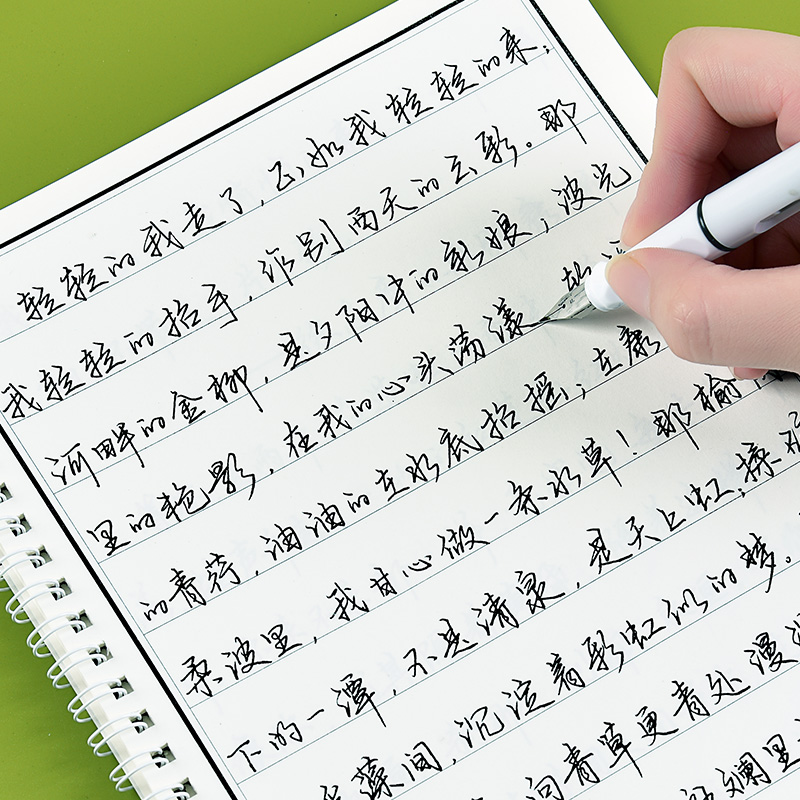 轻轻的我走了,正如我轻轻的来,
我轻轻的招手,作别西天的云彩。那
河畔的金柳,是夕阳中的新娘;波光
里的艳影,在我的心头荡漾
的青荇,油油的在水底招摇;在康
柔波里,我甘心做一条水草!那榆
下的一潭,不是清泉,是天上虹;揉
藻间,沉淀着彩虹似的梦。
向青草更青处漫
斓里